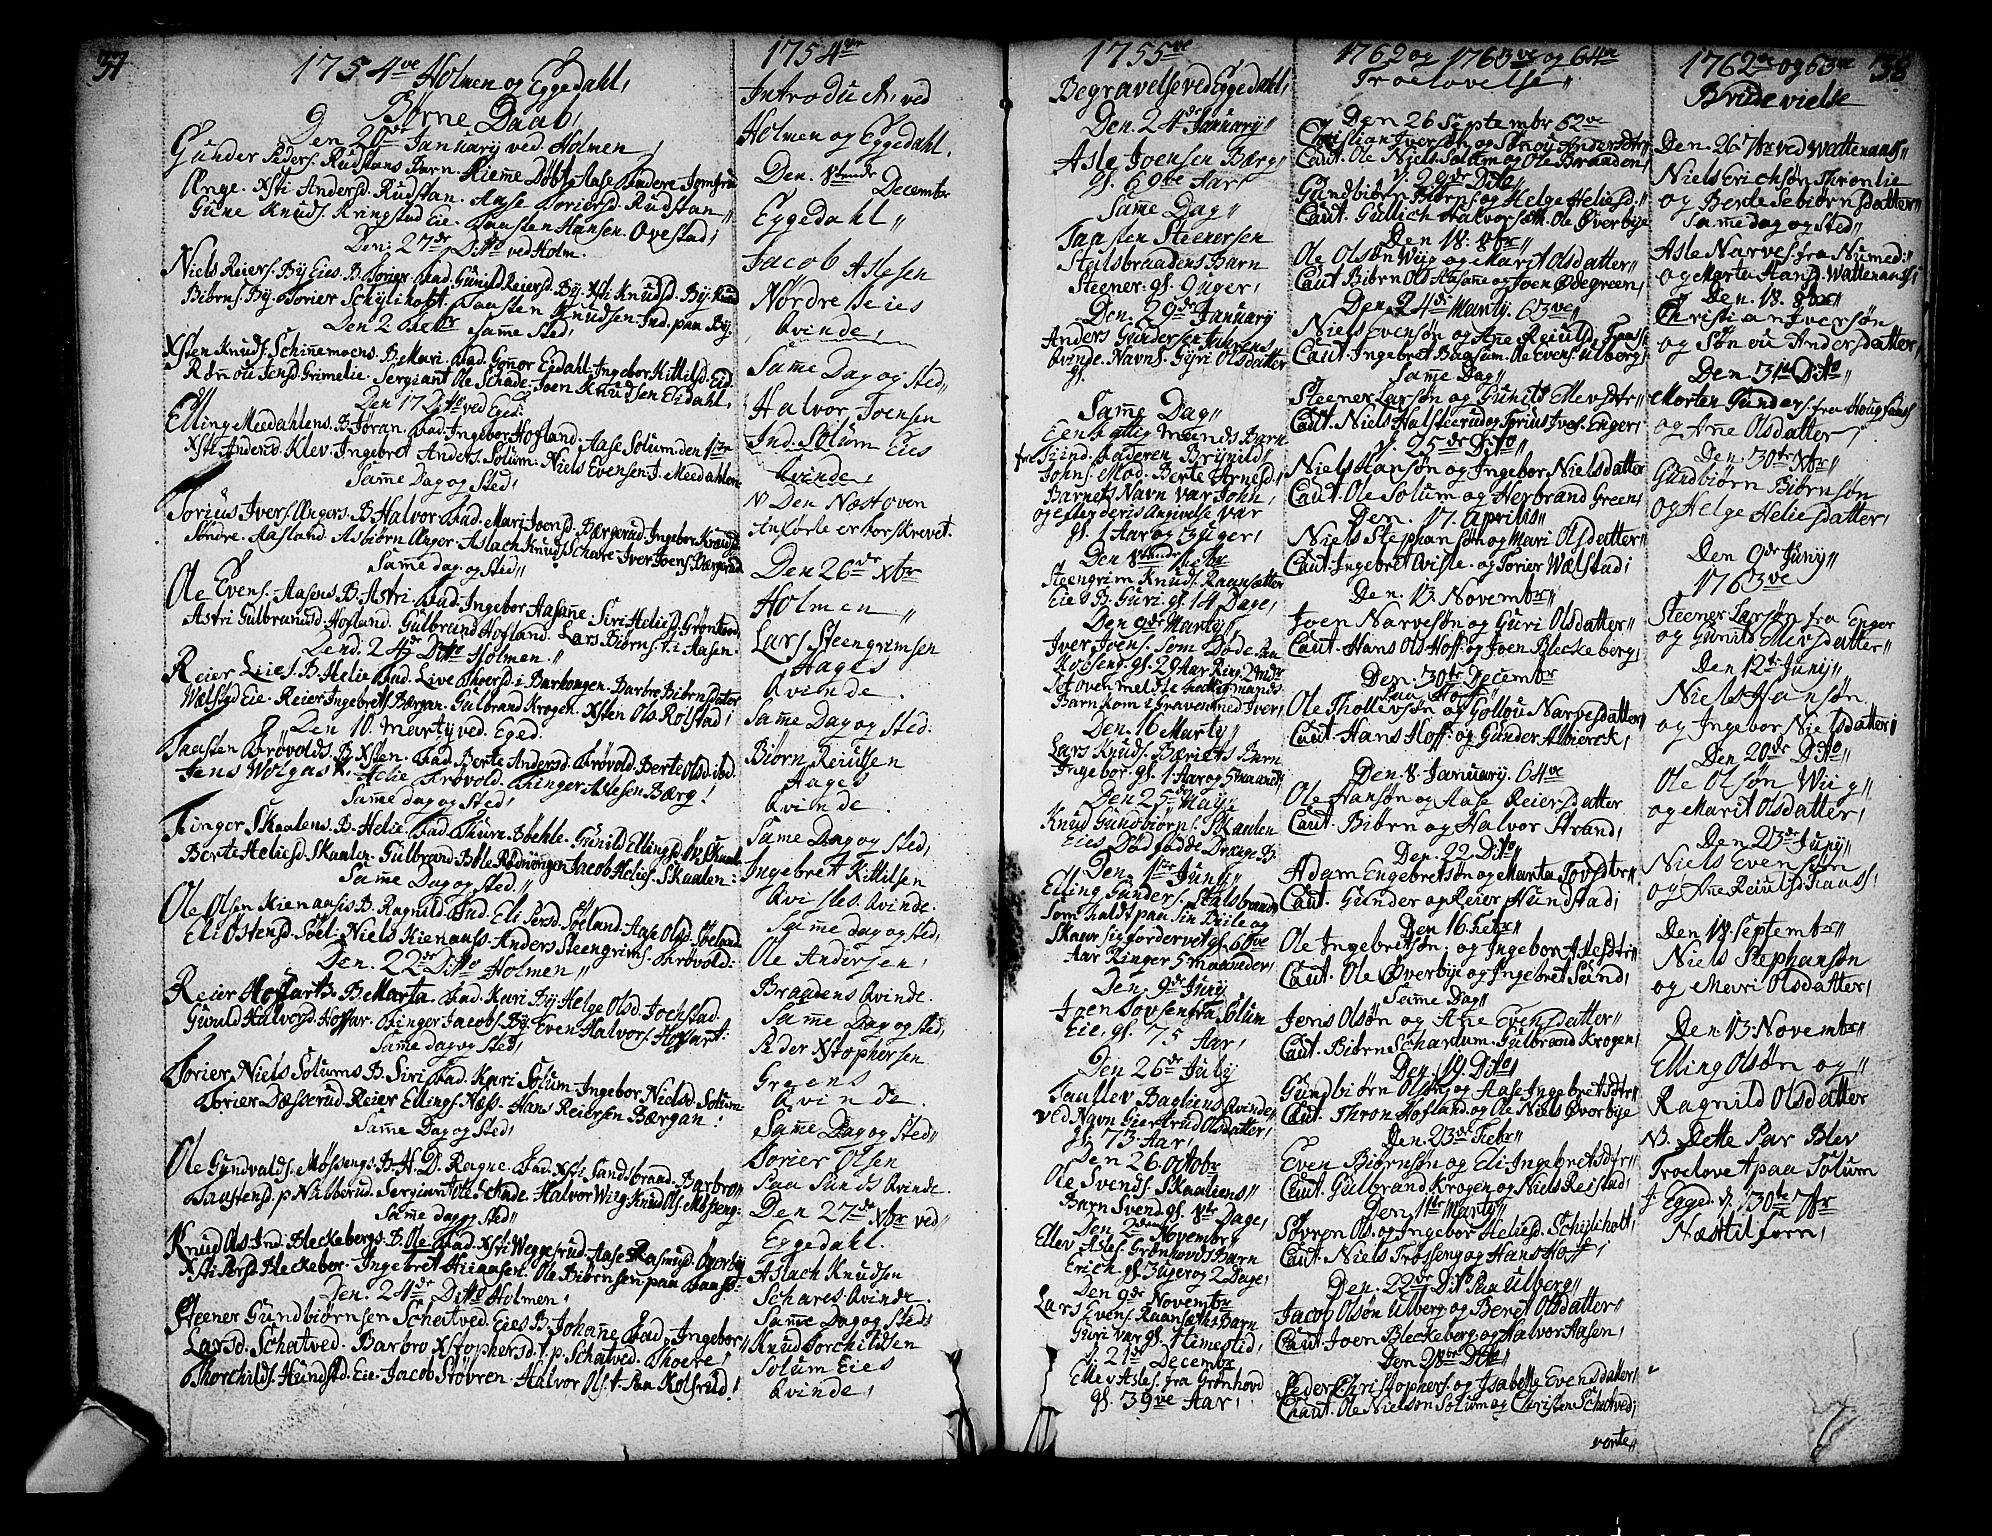 37
1754ve Holmen og Eggedahl,
Børne Daab,
Den 20de January ved Holmen,
Gunder Peders. Rudstans Barn. Kiem̄e Døbt. Aase. Fadere Jomfru
Ænge. Xsti Andersd. Rudstan. Aase Toriersd. Rudstan
Gune Knuds. Ringstad Eie. Taasten Hansen. Ovestad,
Den: 27de Ditto ved Holm.
Niels Reiers. By Eies. B. Torier. Fad. Gunild Reiersd. By. Xsti Knudsd. By. Knud
Biørns. By. Torier Schylsholt. Taasten Knudsen Ind. paa By.
Den 2 Febr sam̄e Sted,
Xsten Knuds. Schinemoens. B. Mari. Fad. Gonor Eidahl. Ingebor Kittilsd. Eid.
Rønou Jensd Grimelie. Sergiant Ole Schade. Joen Knudsen Eidahl,
Den 17 Ditto ved Eged:
Elling Meedahlens. B. Jøran. Fad. Ingebor Hofland. Aase Solum den
Xsti Andersd. Klev. Ingebret Anders. Solum. Niels Evensen J. Meedahlen
Sam̄e Dag og Sted,
Torius Ivers. Ængers. B. Halvor. Fad. Mari Joensd. Bærgerud. Ingebor Knudsd
Søndre. Aasland. Asbiørn Ænger. Aslach Knuds. Schare. Iver Joens. Bærgerud
Sam̄e dag og Sted,
Ole Evens. Aasens B. Astri. Fad. Ingebor Aasane. Siri Helied. Grønhovd
Astri Gulbranuld Hofland. Gulbrand Hofland. Lars Biørns. i Aasen.
Dend. 24de Ditto Holmen.
Reier Lies. B. Helie. Fad. Live Thoersd. i Barhongen. Barbro Biørnsdater
Wælstad Eie. Reier Ingebrets. Bærgan. Gulbrand Krogen. Xsten Ols. Rolstad,
Den 10. Marty ved Eged.
Taasten Frøvolds. B. Xsten. Fad. Berte Andersd. Frøvold. Berte Olsd. ibd
Jens Wolgast. Helie Frøvold. Finger Aslesen Bærg!
Sam̄e dag og Sted,
Finger Skaalens. B. Helie. Fad. Thurn Bøehle. Gunild Ellingsd. Øv. Skaal
Berte Heliesd. Skaalen. Gulbrand Bøle Rødningen Jacob Helies. Skaalen:
Sam̄e Dag og Sted.
Ole Olsen Kienaasis B. Ragnild. Fad. Eli Persd. Søeland. Aase Olsd. Søeland
Eli Østensd. Søel. Niels Kienaass. Anders Steengrims. Frøvold:
Den. 22de Ditto Holmen
Reier Hoffart B. Marta. Fad. Kari By. Helge Olsd. Jochstad.
Gunild Halvorsd. Hoffar. Finger Jacobs. By. Even Halvors. Hoffart:
Sam̄e dag og Sted,
Torier Niels Solums B. Siri. Fad. Kari Solum. Ingebor Nielsd. Solum
Torier Dæsserud. Reier Ellings. Næss. Hans Reiersen Bærgan!
Sam̄e Dag og Sted,
Ole Gundvalds. Møssengs B. H. D. Ragne. Fad. Xsti Sandsbraad. Barbro
Taastensd. p Nubberud. Sergiant Ole Schade. Halvor Wiig. Knud Ols. Møsseng.
Sam̄e dag og Sted
Knud Ols. Ind. Bleckebergs. B. Ole. Fad. Xsti Weggesrud. Aase Rasmusd. Øverby
Xsti Persd. Bleckebor. Ingebret Hiaasen. Ole Biørnsen paa Faass.
Den. 24de Ditto Holmen,
Steener Gundbiørnsen Schatved. Eies B. Johan̄e Fad. Ingebor
Larsd. Schatved. Barbro Xstophersd. t. p. Schatved. Thoere
Thorchilds. Hundstd. Eie. Jacob Støvren. Halvor Ols. t. Paa Kolsrud!
1754ve
Introduct, ved
Holmen og Eggedahl.
Den. 8tende Decembr
Eggedahl
Jacob Aslesen
Nordre Seies
Qvinde,
Sam̄e Dag og Sted
Halvor Joensen
Ind. Solum Eies
Qvinde,
N Den Næst oven
Anførte er forskrevet.
Den 26de Xbr
Holmen
Lars Steengrimsen
Hages
Qvinde.
Sam̄e Dag og Sted.
Biørn Reiulsen
Hages
Qvinde.
Same Dag og Sted,
Ingebret Kittilsen
Qvisles. Qvinde.
Sam̄e dag og Sted,
Ole Andersen,
Braadens Qvinde.
Sam̄e Dag og Sted,
Peder Xstophersen
Greens
Qvinde.
Sam̄e Dag og Sted
Torier Olsen
Paa Sunds Qvinde.
Den 27de Xbr ved
Eggedahl.
Aslach Knudsen
Schares Qvinde.
Sam̄e Dag og Sted
Knud Torchildsen
Solum Eies
Qvinde,
1755ve
Begravelse ved Eggedahl,
Den. 24de January
Asle Joensen Bærg
gl. 69tve Aar,
Sam̄e Dag
Taasten Steenersen
Stulsbraadens Barn
Steener. gl. 9 uger,
Den. 29de January
Anders Gundersen Furens
Qvinde. Navns. Gyri Olsdatter
gl.
Sam̄e Dag
Een Fattig mands Barn
fra Sund. Faderen Brynild
Johns. Mod. Berte Arnesd,
Barnets Navn var John,
og efter deris Angivelse var
gl. 1 Aar og 3 uger,
Den 8tende Febr
Steengrim Knuds. Raansætter
Eies B. Guri. gl. 14 Dage,
Den 9de Marty
Iver Joens. som Døde paa
Kopseng. gl. 29 Aar Ring. 2 Mdr
Det ovenmeldte fattig mands
Barn Kom i Graven med Iver,
Den. 16 Marty
Lars Knuds. Bæriets Barn
Ingebor. gl. 1 Aar og 5 maand,
Den 25de May
Knud Gundbiørns. Skaalen
Eies Død fødde Drænge B.
Den. 1ste Juny
Elling Gunders. Stulsbraad
som haldt paa sin Bøile og
Skaar sig fordervet gl. 60ve
Aar Ringer 5 maaneder,
Den. 9de Juny
Joen Tovsen fra Solum
Eie. gl. 75 Aar,
Den 26de July
Taallev Bagliens Qvinde
ved Navn Giertrud Olsdatter,
gl. 73. Aar,
Den 26. Octobr
Ole Svends. Skaaliens
Barn Svend gl. 8te Dage,
Den 2den Novembr
Ellev Asles. Grønhovds Barn
Erich gl. 3 uger og 2 Dage,
Den 9de Novembr
Lars Evens. Raansæths Barn
Guri var gl. Hiemestid,
D. 21de Decembr
Ellev Asles. fra Grønhovd
gl. 39ve Aar,
1762 og 1763ve og 64ve
Troelovelse
Den 26 Septembr 62ve
Christian Iversøn og Sønøv Andersdtr
Caut. Ole Niels Solum og Ole Braaden,
D. 29de Dito,
Gundbiørn Biørns og Helge Heliesd.
Caut. Gullich Halvorsøn. Ole Øverbye
Den 18. 8br
Ole Olsøn Wiig og Marit Olsdatter
Caut Biørn Ols Aasane og Joen Ødegreen,
Den 24de Marty. 63ve
Niels Evensøn og Ane Reiulsd. Faass
Caut. Ingebret Baasum. Ole Evens. Ulberg,
Sam̄e Dag
Steener Larsøn og Gunild Ellevsdtr
Caut. Niels Halsteerud og Torius Ivers. Enger,
D. 25de Dito
Niels Hansøn og Ingebor Nielsdatter
Caut. Ole Solum og Herbrand Green,
Den. 17. Aprilis
Niels Stephansøn og Mari Olsdatter
Caut. Ingebret Qvisle. og Torier Wælstad,
Den. 13. Novembr
Joen Narvesøn og Guri Olsdatter
Caut. Hans Ols Hoff. og Joen Bleckeberg,
Den. 30te Decembr
Paa Hoff
Ole Thollevsøn og Gollou Narvesdatter
Caut. Hans Hoff. og Gunder Asbierck,
Den. 8. January. 64ve
Ole Hansøn og Aase Reiersdatter
Caut. Biørn og Halvor Strand,
Den. 22. Dito
Adam Engebretsøn og Marta Tovsdtr
Caut. Gunder og Reier Hundstad,
Den 16. Febr
Ole Ingebretsøn, og Ingebor Aslesdtr
Caut. Ole Øverbye og Ingebret Seind,
Sam̄e Dag
Jens Olsøn og Ane Evensdatter
Caut. Biørn Schardum. Gulbrand Krogen,
Den. 19. Dito
Gundbiørn Olsøn og Aase Ingebretsdtr
Caut. Thron Hofland. og Ole Niels Øvorbye
Den. 23de Febr
Even Biørnsøn og Eli Ingebretsdtr
Caut. Gulbrand Krogen og Niels Reistad,
Den. 11te Marty
Søvren Ols. og Ingebor Heliesd. Schylsholt,
Caut. Niels Frøseng og Hans Hoff,
Den. 22de Dito Paa Ulberg
Jacob Olsøn Ulberg og Beret Olsdatter
Caut Joen Bleckeberg og Halvor Aasen,
Den 28de Dito
Peder Christophers. og Isabelle Evensdatter
Caut. Ole Nielsøn Solum og Christen Schatved,
verte
38
1762ve og 63ve
Brudevielse
Den. 26 7br ved Wattenaass
Niels Erichsøn Thronlie
og Berte Sebiørnsdatter
Sam̄e dag og Sted,
Asle Narves. fra Numed.
og Marta Hansd. Wattenaas,
Den. 18. 8br
Christian Iversøn
og Sønou Andersdatter,
Den 31te Dito
Morten Gunders. fra Hougfaass
og Ane Olsdatter,
Den. 30te Xbr
Gundbiørn Biørnsøn
og Helge Heliesdatter,
Den 9de Juny
1763ve
Steener Larsøn fra Enger
og Gunild Ellevsdatter
Den 12te Juny
Niels Hansøn
og Ingebor Nielsdatter,
Den 20de Dito
Ole Olsøn Wiig
og Marit Olsdatter,
Den 23de Juny
Niels Evensøn
og Ane Reiulsd Faass,
Den 18. Septembr
Niels Stephansøn
og Mari Olsdatter,
Den. 13. Novembr
Elling Olsøn og
Ragnild Olsdatter
NB. Dette Par Blev
Troelovet paa Solum
J. Egged. D. 30te 7br
Næstilforn,